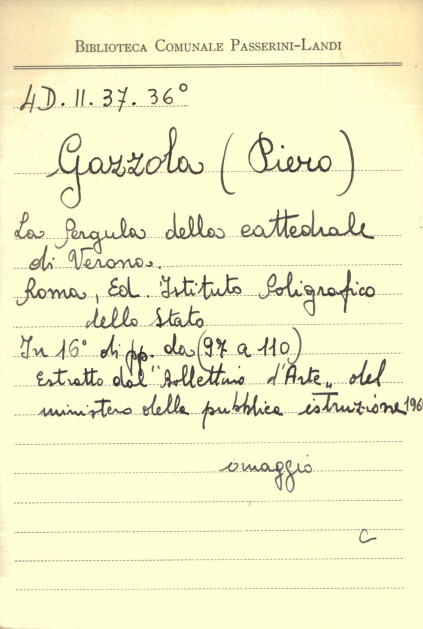 BIBLIOTECA COMUNALE PASSERINI-LANDI
4D. II. 37. 36°
Gazzola (Piero)
La Pergula della cattedrale
di Verona.
Roma, Ed. Istituto Poligrafico
dello Stato
In 16° di pp. da (97 a 110)
Estratto dal "Bollettino d'Arte„ del
ministero della pubblica istruzione
omaggio
C